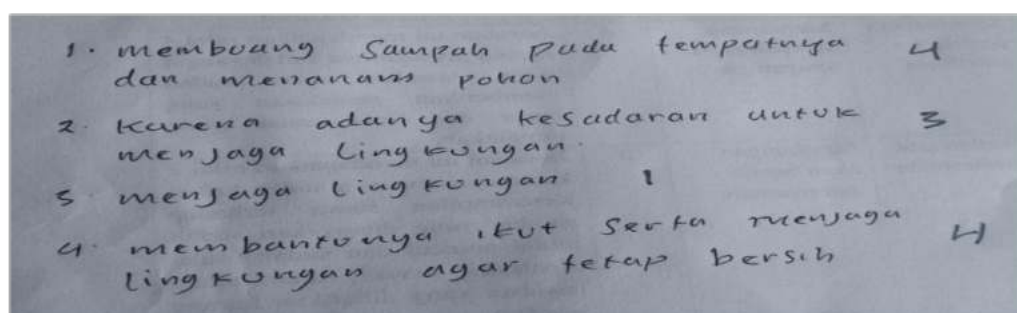 1. membuang sampah pada tempatnya 4
dan menanam pohon
2. Karena adanya kesadaran untuk 3
menjaga lingkungan.
3 menjaga lingkungan 1
4. membantunya ikut serta menjaga 4
lingkungan agar tetap bersih